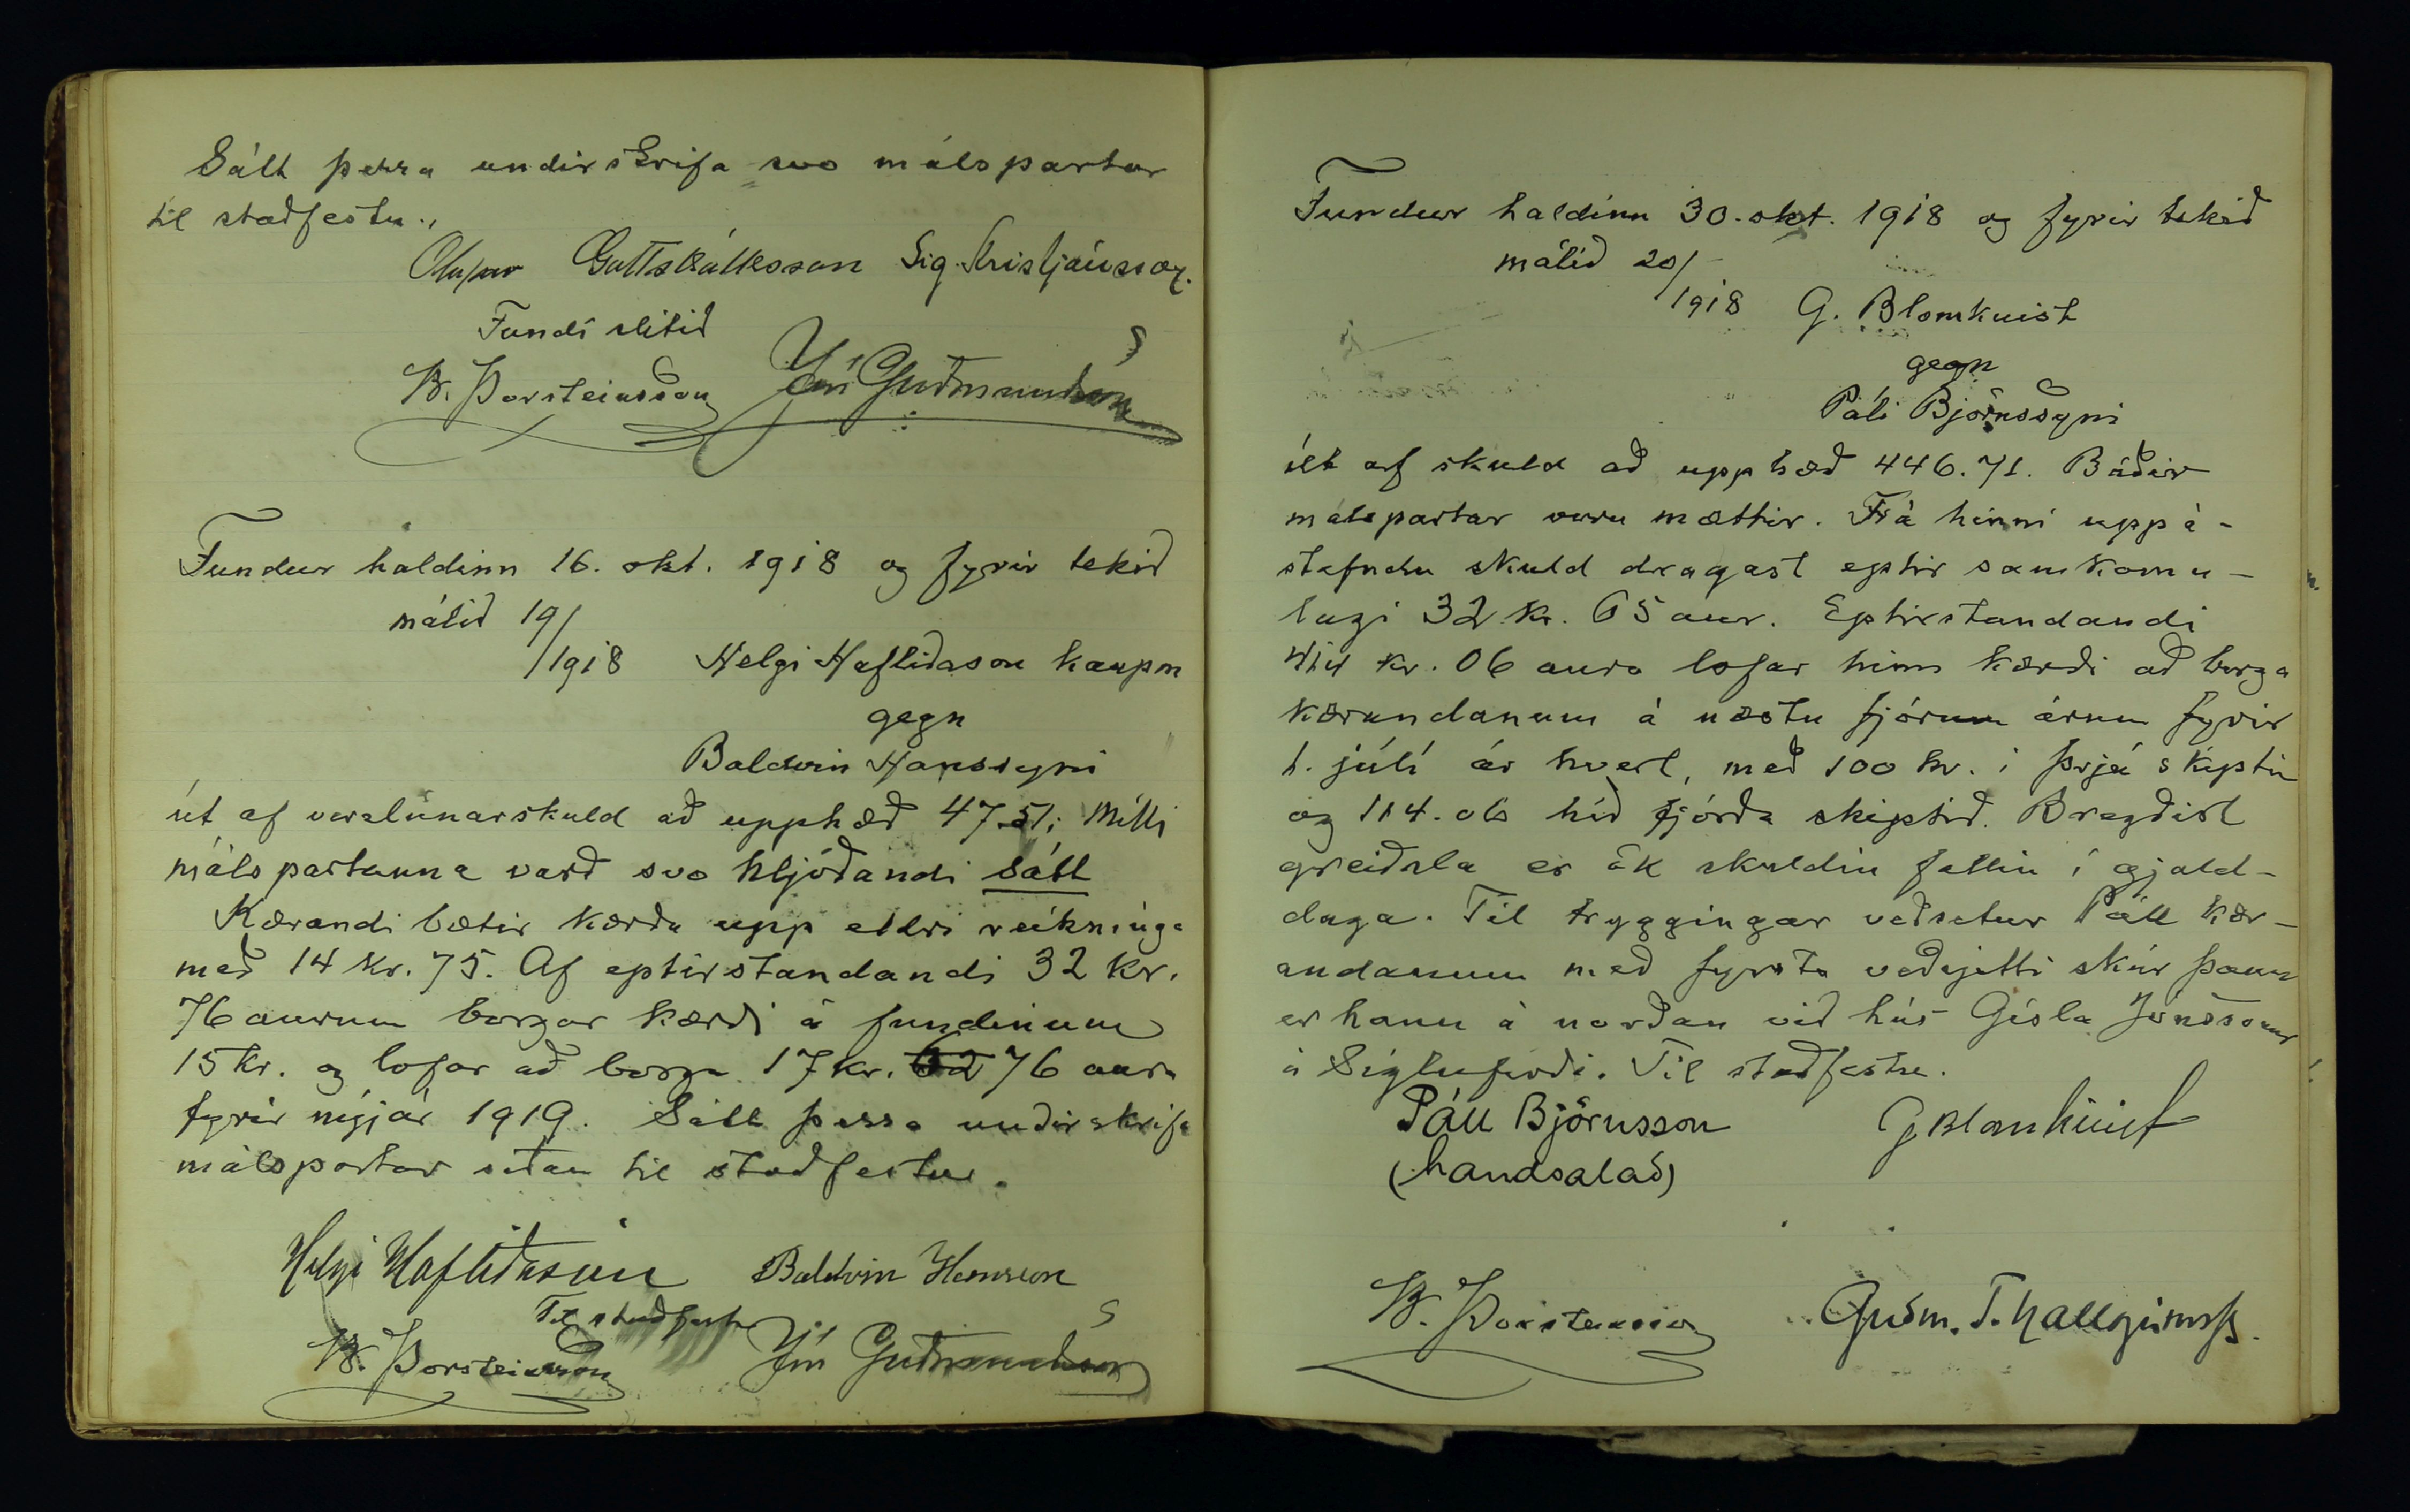 Sátt þessa undirskrifa svo málspartar
til staðfestu.,
Olafur Gottskálksson Sig. Kristjánsson.
Fundi slitið
B. Þorsteinsson Jón Guðmundsson
Fundur haldinn 16. okt. 1918 og fyrir tekið
málið 19/1918 Helgi Hafliðason kaupm
gegn
Baldvin Hanssyni
út af verslunarskuld að upphæð 47.51; Milli
málspartanna varð svo hljóðandi sátt
Kærandi bætir kærða upp eldri reikninga
með 14 kr. 75. Af eptirstandandi 32 kr.
76 aurum borgar kærði á fundinum
15 kr. og lofar að borga 17 kr. 76 aura
fyrir nýjár 1919. Sátt þessa undirskrifa
málspartar síðan til staðfestu.
Helgi Hafliðason Baldvin Hansson
Til staðfestu
B. Þorsteinsson Jón Guðmundsson
Fundur haldinn 30. okt. 1918 og fyrir tekið
málið 20/1918 G. Blomkvist
gegn
Páli Björnssyni
út af skuld að upphæð 446.71. Báðir
málspartar voru mættir. Frá hinni uppá-
stefndu skuld dragast eptir samkomu-
lagi 32 kr. 65 aur. Eptirstandandi
414 kr. 06 aura lofar hinn kærði að borga
kærandanum á næstu fjórum árum fyrir
1. júlí ár hvert, með 100 kr. í þrjá skiptin
og 114.06 hið fjórða skiptið. Bregðist
greiðsla er öll skuldin fallin í gjald-
daga. Til tryggingar veðsetur Páll kær-
andanum með fyrsta veðrjetti skúr þann
er hann á norðan við hús Gísla Jónssonar
á Siglufirði. Til staðfestu.
Páll Björnsson G Blomkvist
(handsalað)
B. Þorsteinsson Guðm. T. Hallgrímss.